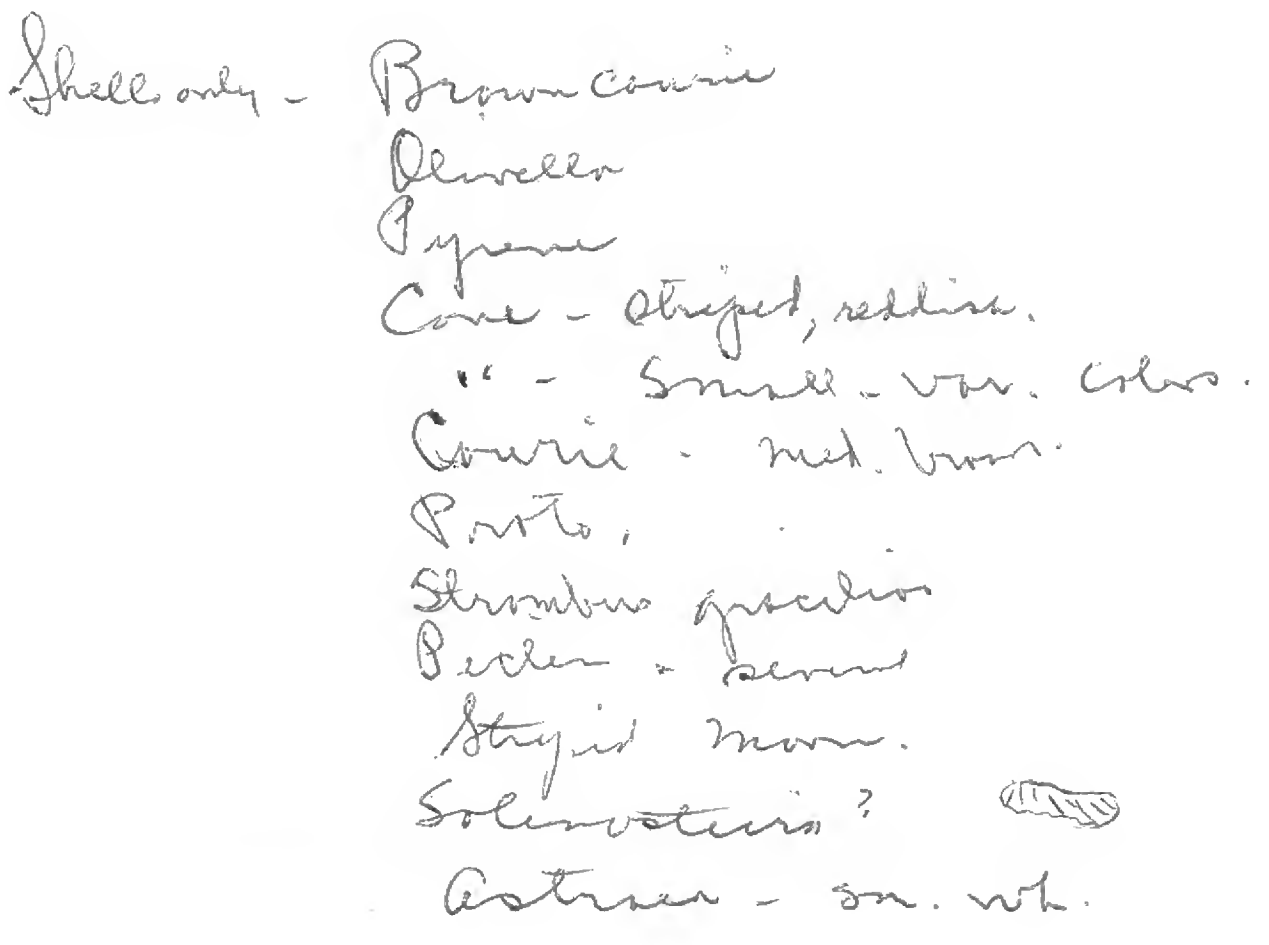 Shells only - Brown cowrie
Olivella
Pyrene
Cone - striped, reddish.
" - Small - var. colors.
Cowrie - med. brown.
Proto.
Strombus gracilior
Pecten - several
Striped moon.
Solenosteira ?
Astraea - sm. wh.